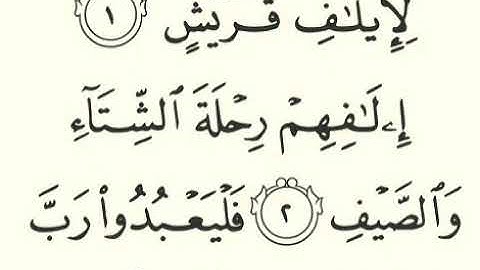 لِإِيلَـٰفِ قُرَيْشٍ ١
إِۦلَـٰفِهِمْ رِحْلَةَ ٱلشِّتَآءِ
وَٱلصَّيْفِ ٢ فَلْيَعْبُدُوا۟ رَبَّ